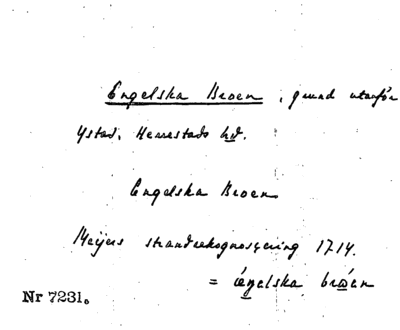 Engelska Broen, grund utanför
Ystad, Herrestads hd.
Engelska Broen
Meijers strandrekognosçering 1714.
= ængelska bråen
Nr 7231.